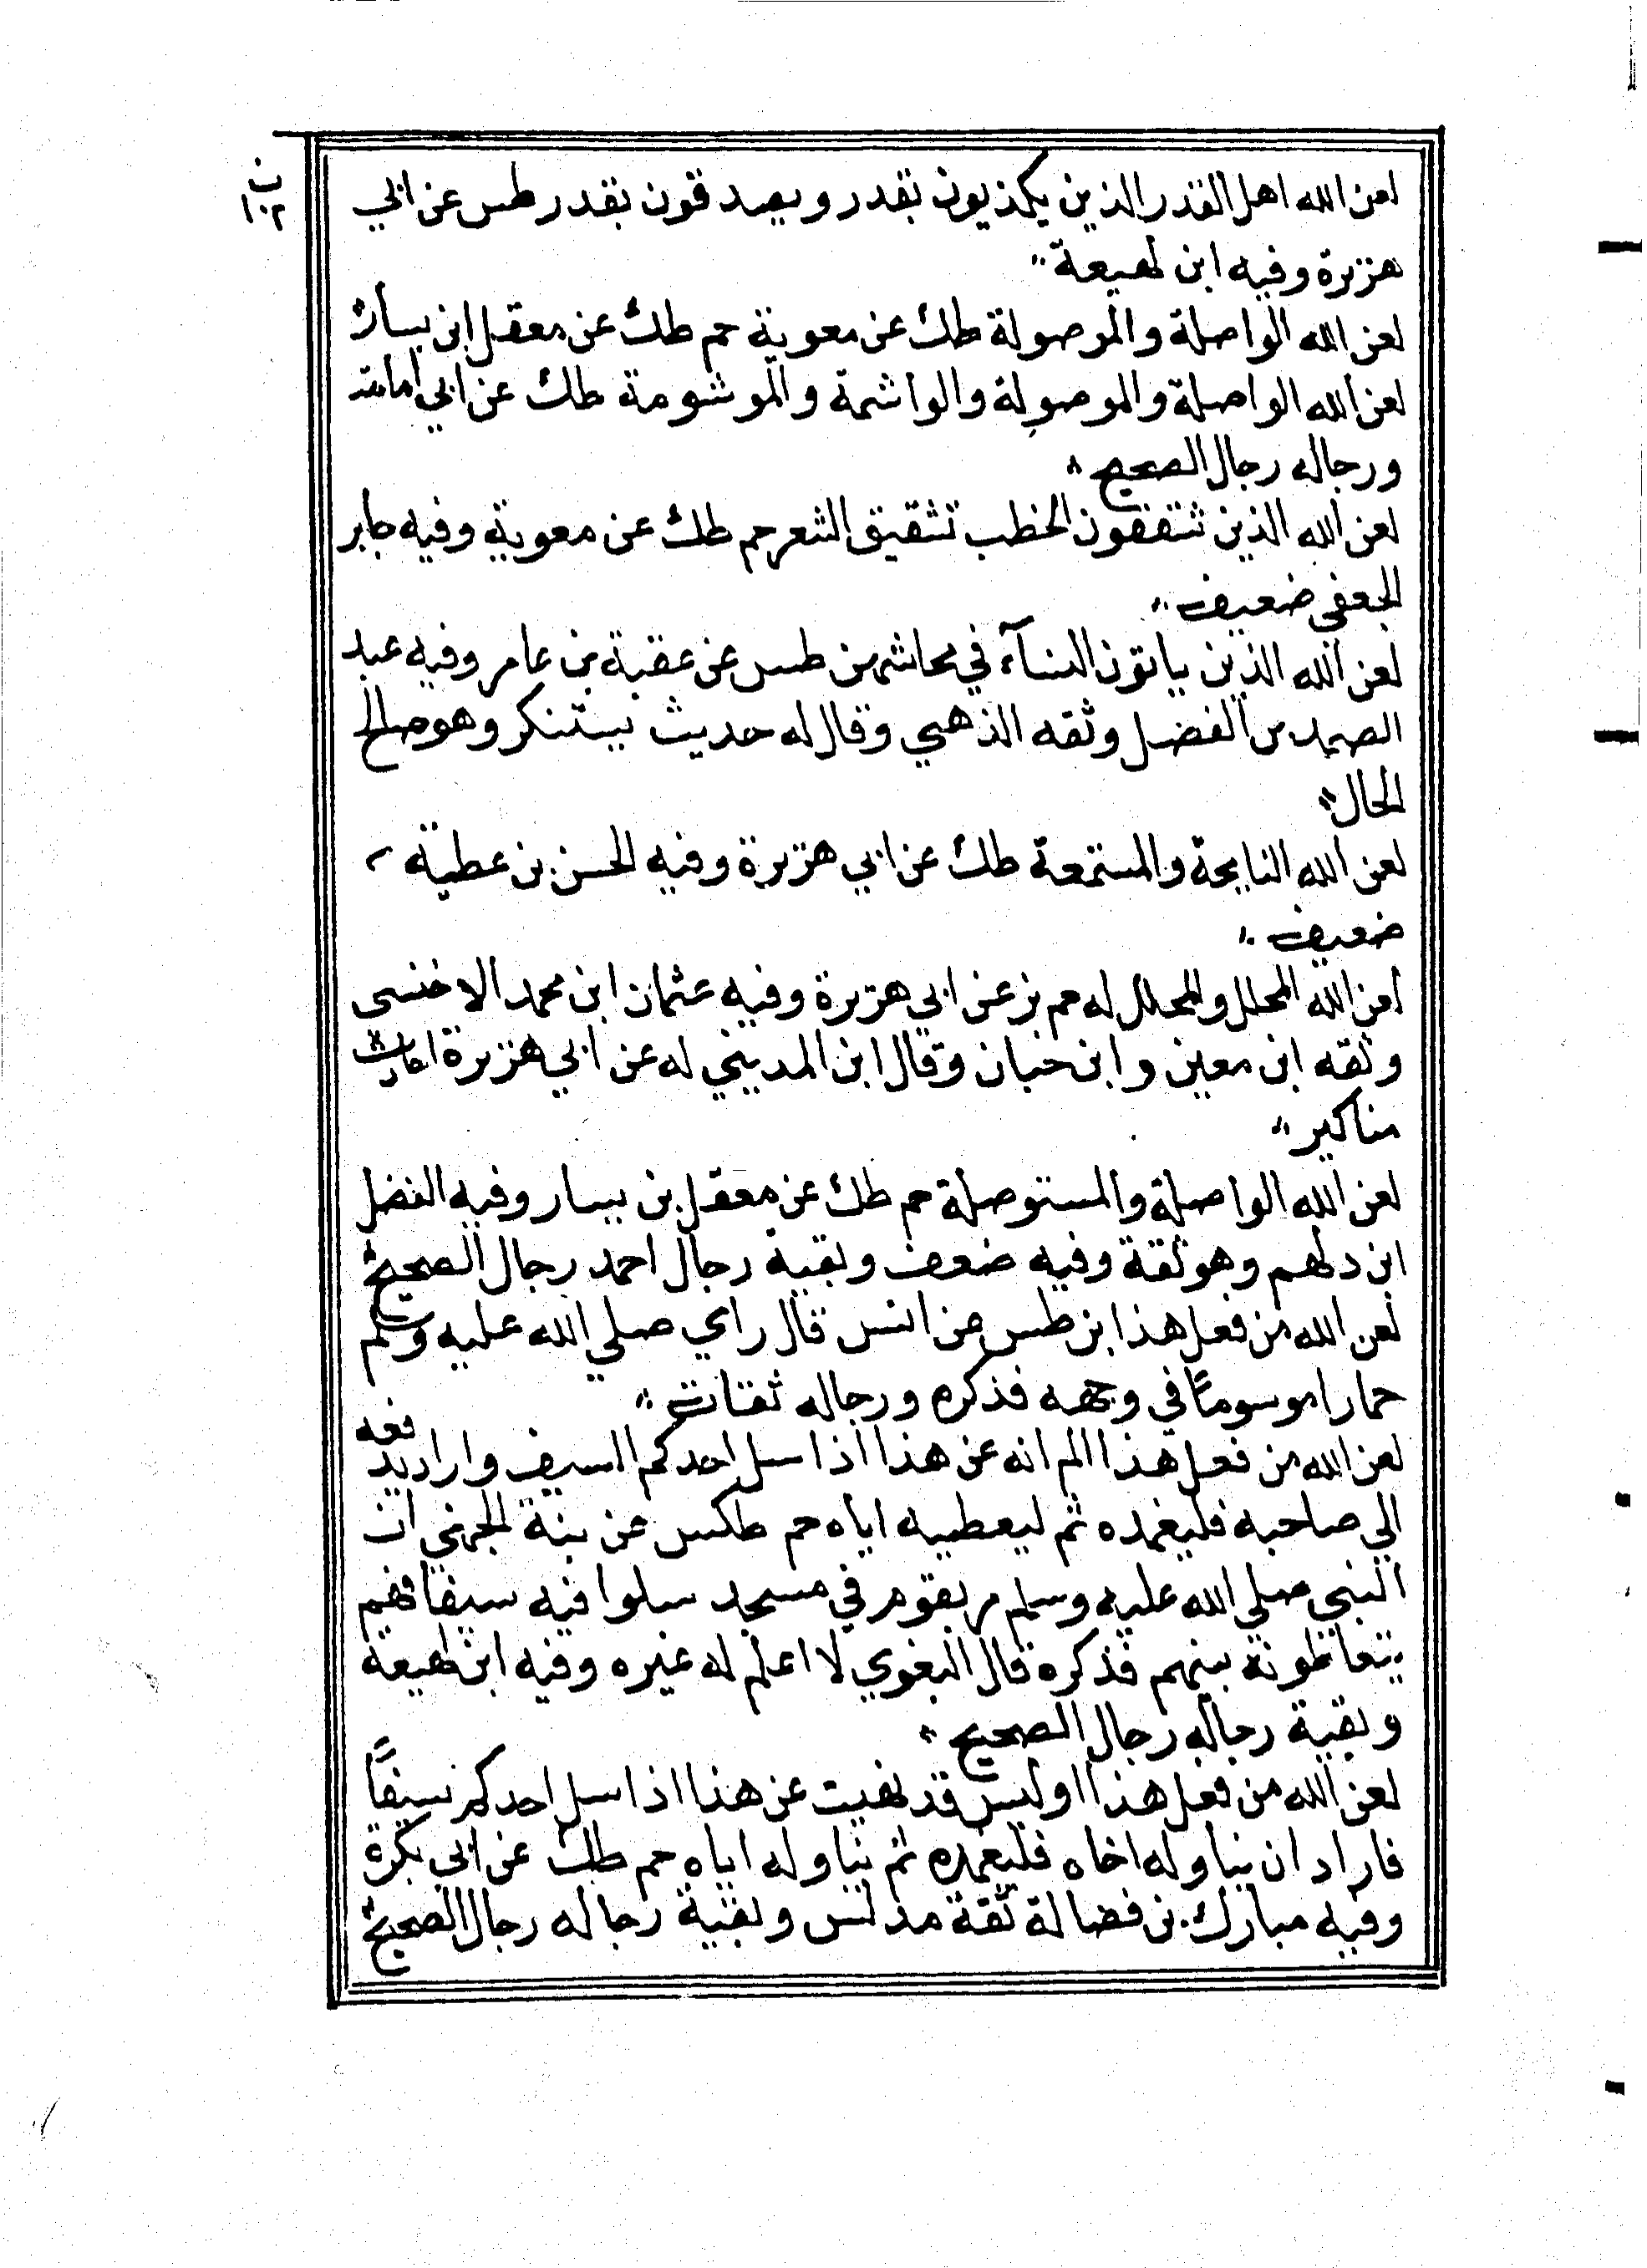 ب
١٠٢
لعن الله اهل القدر الذين يكذبون بقدر ويصدقون بقدر طس عن ابي
هريرة وفيه ابن لهيعة
لعن الله الواصلة والموصولة طك عن معوية حم طك عن معقل ابن يسار
لعن الله الواصلة والموصولة والواشمة والموشومة طك عن ابي امامة
ورجاله رجال الصحيح
لعن الله الذين تشققون الخطب تشقيق الشعر حم طك عن معوية وفيه جابر
الجعفي ضعيف
لعن الله الذين ياتون النسآء في محاشهن طس عن عقبة بن عامر وفيه عبد
الصمد بن الفضل وثقه الذهبي وقال له حديث يستنكر وهو صالح
الحال
لعن الله النايحة والمستمعة طك عن ابي هريرة وفيه الحسن بن عطية
ضعيف
لعن الله المحلل والمحلل له حم بز عن ابي هريرة وفيه عثمان ابن محمد الاخنسى
وثقه ابن معين وابن حبان وقال ابن المديني له عن ابي هريرة احاديث
مناكير
لعن الله الواصلة والمستوصلة حم طك عن معقل بن يسار وفيه الفضل
ابن دلهم وهو ثقة وفيه ضعف وبقية رجال احمد رجال الصحيح
لعن الله من فعل هذا بز طس عن انس قال راي صلي الله عليه وسلم
حمارا موسوماً في وجهه فذكره ورجاله ثقات
لعن الله من فعل هذا الم انه عن هذا اذا سل احدكم السيف واراد يدفعه
الي صاحبه فليغمده ثم ليعطيه اياه حم طكس عن بنة الجهني ان
النبي صلي الله عليه وسلم مر بقوم في مسجد سلوا فيه سيفا فهم
يتعاطونه بينهم فذكره قال البغوي لا اعلم له غيره وفيه ابن لهيعة
وبقية رجاله رجال الصحيح
لعن الله من فعل هذا اوليس قد نهيت عن هذا اذا سل احدكم سيفاً
فاراد ان يناوله اخاه فليغمده ثم يناوله اياه حم طك عن ابي بكرة
وفيه مبارك بن فضالة ثقة مدلس وبقية رجاله رجال الصحيح